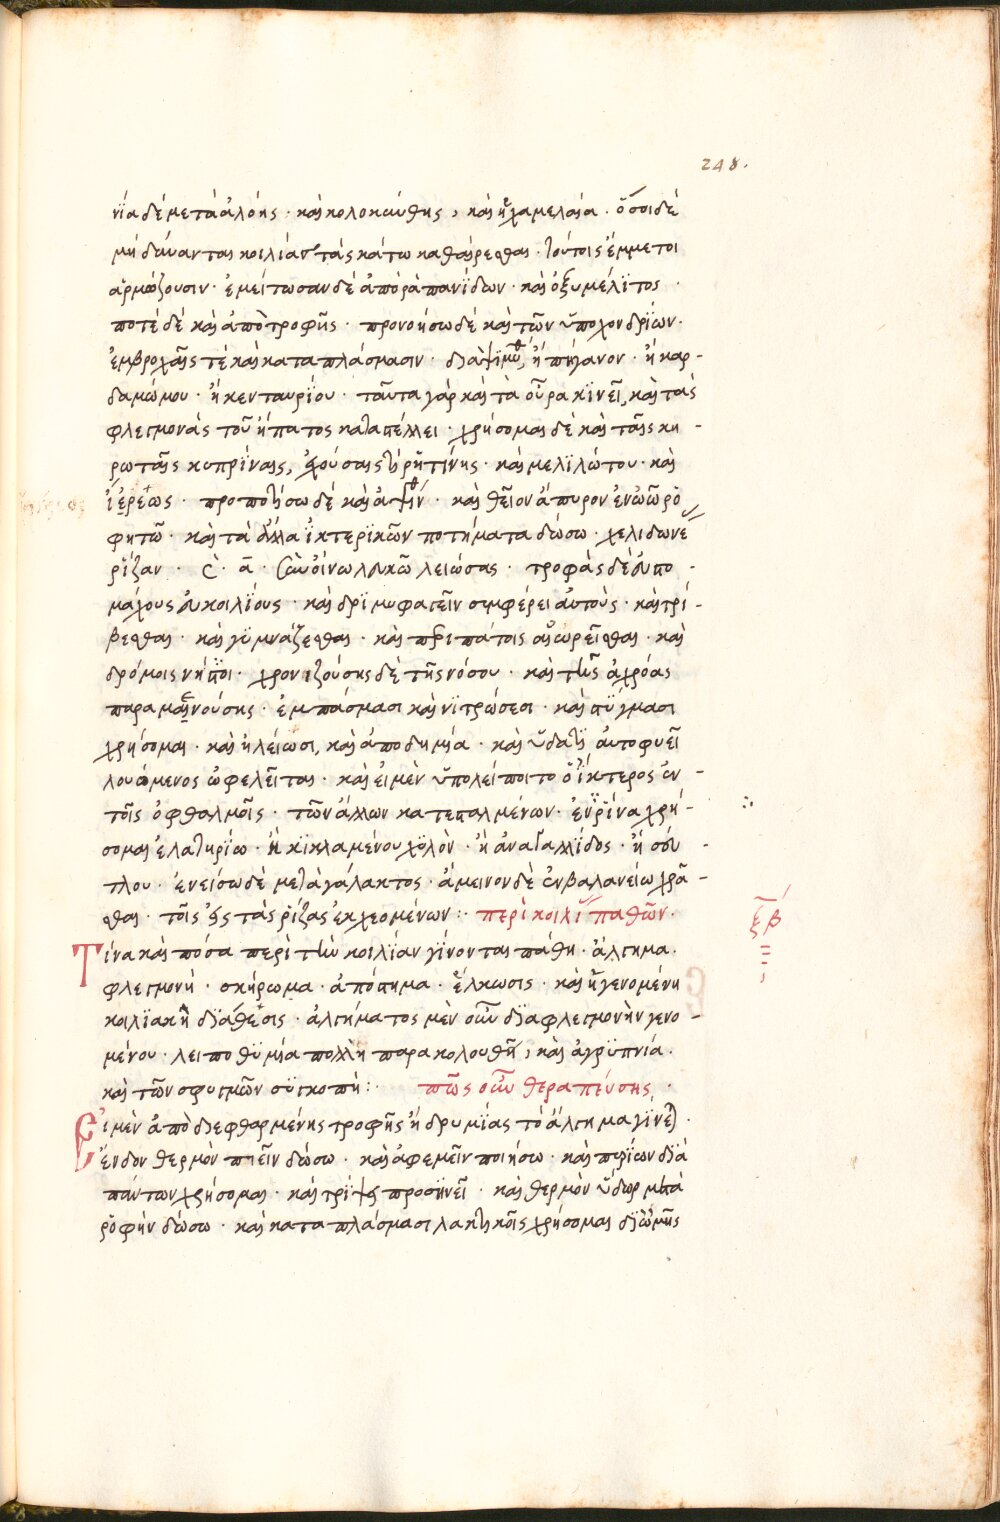 248.
νία δὲ μετὰ ἀλόης · καὶ κολοκύνθης, καὶ ἡ χαμελαία · ὅσοι δὲ
μὴ δύνανται κοιλίας τὰς κάτω καθαίρεσθαι · τούτοις ἔμμετοι
ἁρμόζουσιν · ἐμείτωσαν δὲ ἀπὸ ῥαπανίδων · καὶ ὀξυμέλιτος ·
ποτὲ δὲ καὶ ἀπὸ τροφῆς · προνοήσω δὲ καὶ τῶν ὑποχονδρίων ·
ἐμβροχαῖς τὲ καὶ καταπλάσμασιν · ἢ πήγανον · ἢ καρ-
δαμώμου · ἢ κενταυρίου · ταῦτα γὰρ καὶ τὰ οὖρα κινεῖ, καὶ τὰς
φλεγμονὰς τοῦ ἥπατος καταστέλλει · χρήσομαι δὲ καὶ ταῖς κη-
ρωταῖς κυπρίναις, ἐχούσαις ῥητίνης · καὶ μελιλώτου · καὶ
ἰέρεως · προποτίσω δὲ καὶ · καὶ θεῖον ἄπυρον ἐν ὠῷ ῥο
φητῶ · καὶ τὰ ἄλλα ἰκτερικῶν ποτήματα δώσω · χελιδωνε
ρίζαν · · ᾱ · σὺν οἴνω λευκῶ λειώσας · τροφὰς δὲ εὐστο-
μάχους εὐκοιλίους · καὶ δριμυφαγεῖν συμφέρει αὐτοὺς · καὶ τρί-
βεσθαι · καὶ γυμνάζεσθαι · καὶ περιπάτοις αἰωρεῖσθαι · καὶ
δρόμοις νήπιοι · χρονιζούσης δὲ τῆς νόσου · καὶ τῆς ἀχρόας
παραμενούσης · ἐμπάσμασι καὶ νιτρώσεσι · καὶ σμήγμασι
χρήσομαι · καὶ ἡλιώσι, καὶ ἀποδημία · καὶ ὕδατι αὐτοφυεῖ
λουόμενος ὠφελεῖται · καὶ εἰ μὲν ὑπολείποιτο ὁ ἴκτερος ἐν -
τοῖς ὀφθαλμοῖς · τῶν ἄλλων κατεσταλμένων · ἔνρινα χρή-
σομαι ἐλατηρίω · ἢ κικλαμένου χυλὸν · ἢ ἀναγαλλίδος · ἢ σεύ-
τλου · ἐνείσω δὲ μετὰ γάλακτος · ἄμεινον δὲ ἐν βαλανείω χρᾶ-
σθαι · τοῖς τὰς ῥίζας ἐκχεομένων : περὶ κοιλι παθῶν ·
ξβ
Τίνα καὶ πόσα περὶ τὴν κοιλίαν γίνονται πάθη · ἄλγημα ·
φλεγμονὴ · σκήρωμα · ἀπόστημα · ἕλκωσις · καὶ ἡ γενομένη
κοιλιακὴ διάθεσις · ἀλγήματος μὲν οὖν διὰ φλεγμονὴν γενο-
μένου · λειποθυμία πολλὴ παρακολουθῆ, καὶ ἀγρυπνία ·
καὶ τῶν σφυγμῶν συγκοπή : πῶς οὖν θεραπεύσης ·
Εἰ μὲν ἀπὸ διεφθαρμένης τροφῆς ἢ δρυμίας τὸ ἄλγημα γίνεται ·
ἔνδον θερμὸν πιεῖν δώσω · καὶ ἀφεμεῖν ποιήσω · καὶ πυρίων διὰ
πάντων χρήσομαι · καὶ τρίψις προσηνεῖ · καὶ θερμὸν ὕδωρ μετὰ
ῥοφὴν δώσω · καὶ καταπλάσμασι λακτικοῖς χρήσομαι δι' ὠμῆς